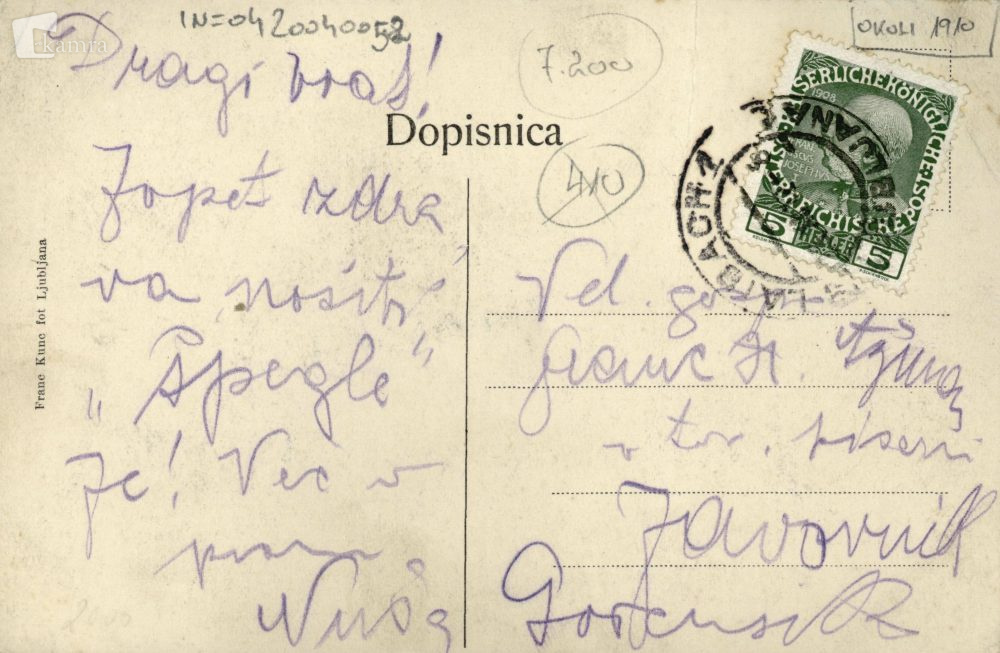 kamra
IN=0420040052
OKOLI 1910
7.200
Dragi brat!
Dopisnica
410
Zopet zdra
va nositi
„Špegle"
je! Več v
pismu
Nuša
Franc Kunc fot Ljubljana
SERLICHE KÖNIGLICHE ÖSTERREICHISCHE POST
1908
5 HELLER 5
LAIBACH 1
LJUBLJANA
Vel. gosp.
Franc H. Ažman
v tov. pisarni
Javornik
Gorensko
2000